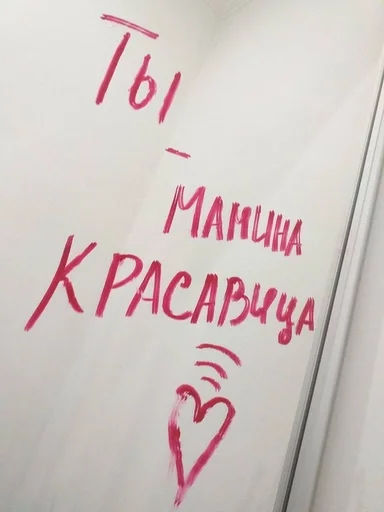 Ты
-
Мамина
Красавица